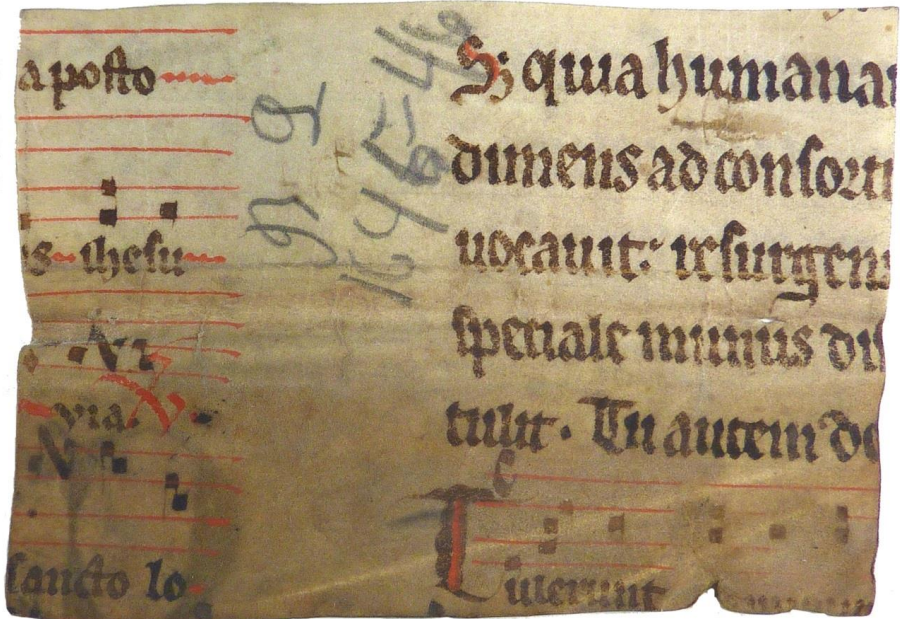 aposto
s ihesu
uia. V
sancto lo
1645-46
S; quia humana
dimens ad consorti
uocauit: resurgens
speciale munus di
tulit. Tu autem do
Tulerunt